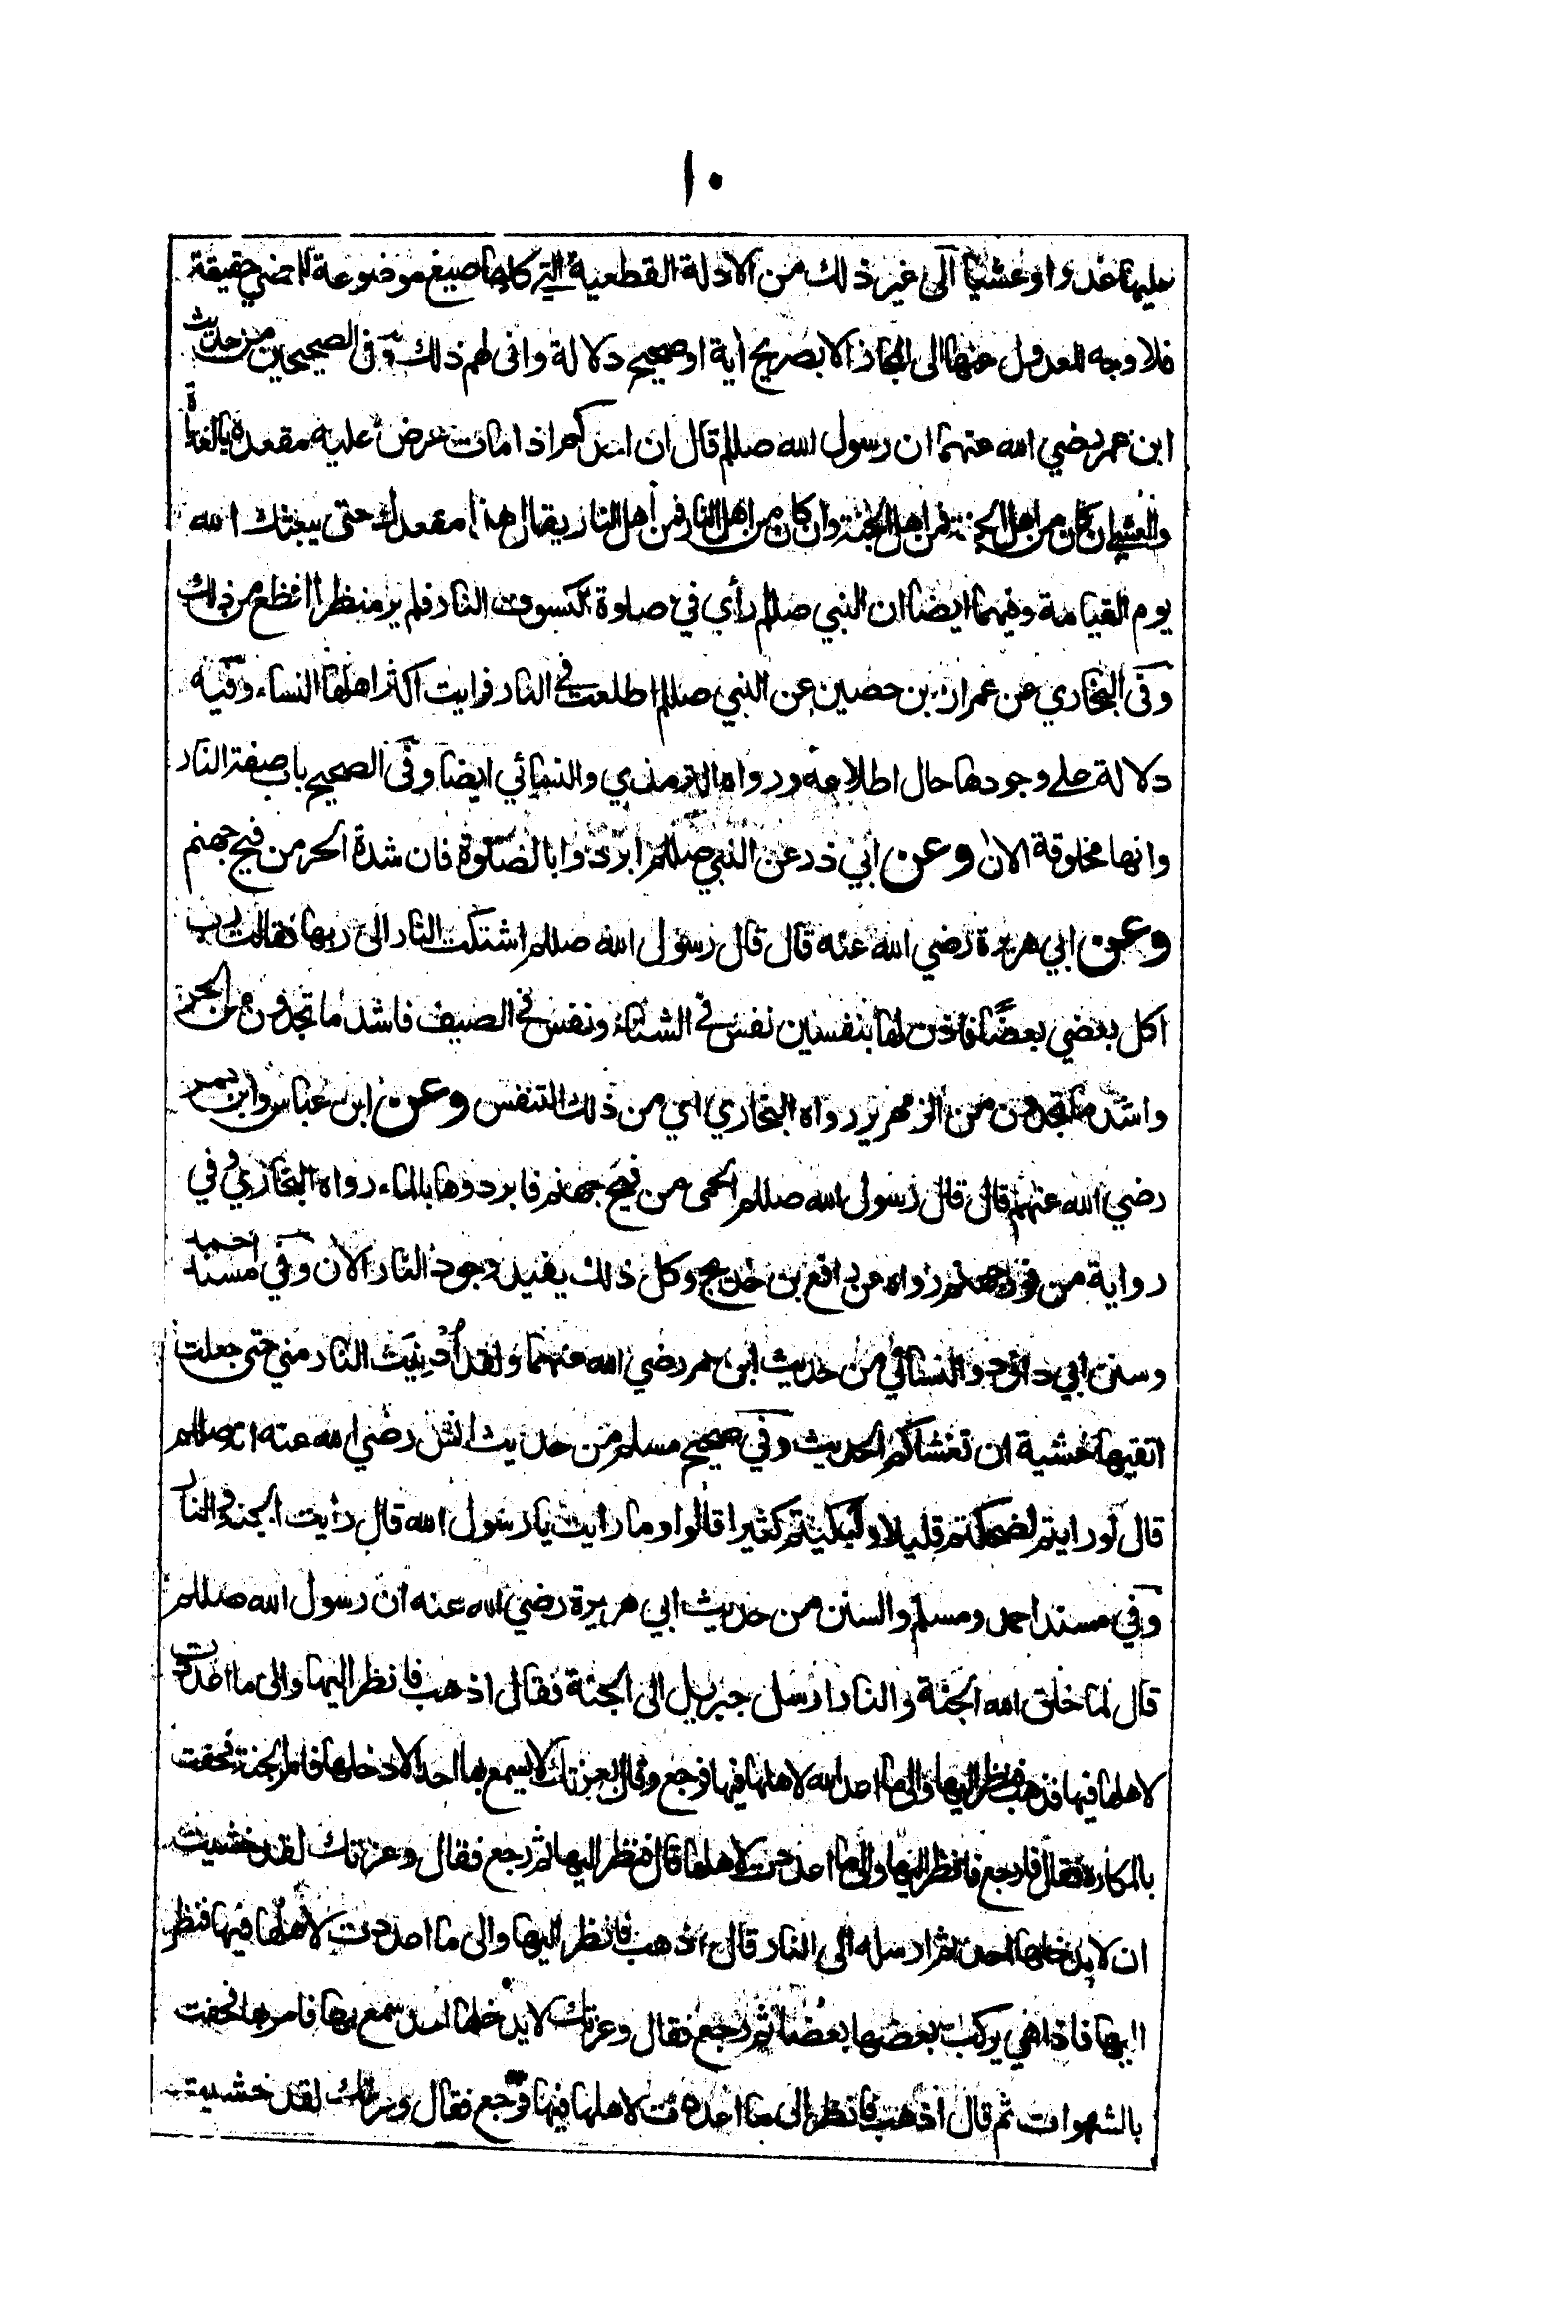 ١٠
عليها غدوا وعشيا الى غير ذلك من الادلة القطعية التي كلها صيغ موضوعة للمضي حقيقة
فلا وجه للعدول عنها الى المجاز الا بصريح آية او صحيح دلالة وانى لهم ذلك وفى الصحيحين من حديث
ابن عمر رضي الله عنهما ان رسول الله صللم قال ان احدكم اذا مات عرض عليه مقعده بالغداة
والعشي ان كان من اهل الجنة فمن اهل الجنة وان كان من اهل النار فمن أهل النار يقال هذا مقعدك حتى يبعثك الله
يوم القيامة وفيهما ايضا ان النبي صللم رأي في صلوة الكسوف النار فلم ير منظرا افظع من ذلك
وفى البخاري عن عمران بن حصين عن النبي صللم اطلعت في النار فرايت اكثر اهلها النساء وفيه
دلالة على وجودها حال اطلاعه ورواه الترمذي والنسائي ايضا وفى الصحيح باب صفة النار
وانها مخلوقة الان وعن ابي ذر عن النبي صللم ابردوا بالصلوة فان شدة الحر من فيح جهنم
وعن ابي هريرة رضي الله عنه قال قال رسول الله صللم اشتكت النار الى ربها فقالت رب
اكل بعضي بعضًا فاذن لها بنفسين نفس في الشتاء ونفس في الصيف فاشد ما تجدون من الحر
واشد ما تجدون من الزمهرير رواه البخاري اي من ذلك التنفس وعن ابن عباس وابن عمر
رضي الله عنهم قال قال رسول الله صللم الحمى من فيح جهنم فابردوها بالماء رواه البخاري وفي
رواية من فور جهنم رواه عن رافع بن خديج وكل ذلك يفيد وجود النار الان وفي مسند احمد
وسنن ابي داؤد والنسائي من حديث ابن عمر رضي الله عنهما ولقد أدنِيَت النار مني حتى جعلت
اتقيها خشية ان تغشاكم الحديث وفي صحيح مسلم من حديث انس رضي الله عنه انه صللم
قال لو رايتم لضحكتم قليلا ولبكيتم كثيرا قالوا وما رايت يا رسول الله قال رأيت الجنة والنار
وفي مسند احمد ومسلم والسنن من حديث ابي هريرة رضي الله عنه ان رسول الله صللم
قال لما خلق الله الجنة والنار ارسل جبريل الى الجنة فقال اذهب فانظر اليها والى ما اعددت
لاهلها فيها فذهب فنظر اليها والى ما اعد الله لاهلها فيها فرجع وقال بعزتك لا يسمع بها احد الا دخلها فامر بالجنة فحفت
بالمكاره فقال فارجع فانظر اليها والى ما اعددت لاهلها قال فنظر اليها ثم رجع فقال وعزتك لقد خشيت
ان لا يدخلها احد ثم ارسله الى النار قال اذهب فانظر اليها والى ما اعددت لأهلها فيها فنظر
اليها فاذا هي يركب بعضها بعضا ثم رجع فقال وعزتك لا يدخلها احد سمع بها فامر بها فحفت
بالشهوات ثم قال اذهب فانظر الى ما اعددت لاهلها فيها فرجع فقال وعزتك لقد خشيت